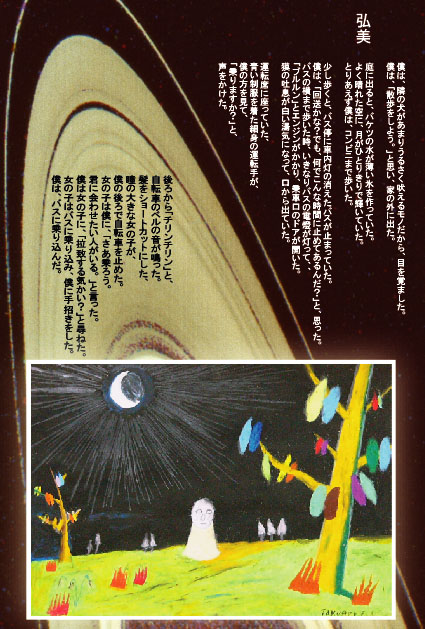 弘美
僕は、隣の犬があまりうるさく吠えるモノだから、目を覚ました。
僕は、「散歩をしよう。」と思い、家の外に出た。
庭に出ると、バケツの水が薄い氷を作っていた。
よく晴れた空に、月がひとりきりで輝いていた。
とりあえず僕は、コンビニまで歩いた。
少し歩くと、バス停に車内灯の消えたバスが止まっていた。
僕は、「回送かな？でも、何でこんな時間に止めてあるんだ？」と、思った。
バスの横まで歩いた時、いきなりバスの電燈が灯って、
「ブルルン」とエンジンがかかり、乗車口のドアが開いた。
僕の吐息が白い湯気になって、口から出ていた。
運転席に座っていた、
青い制服を着た細身の運転手が、
僕の方を見て、
「乗りますか？」と、
声をかけた。
後ろから「チリンチリン」と、
自転車のベルの音が鳴った。
髪をショートカットにした、
瞳の大きな女の子が、
僕の後ろで自転車を止めた。
女の子は僕に、「さあ乗ろう。
君に会わせたい人がいる。」と言った。
僕は女の子に、「拉致する気かい？」と尋ねた。
女の子はバスに乗り込み、僕に手招きをした。
僕は、バスに乗り込んだ。